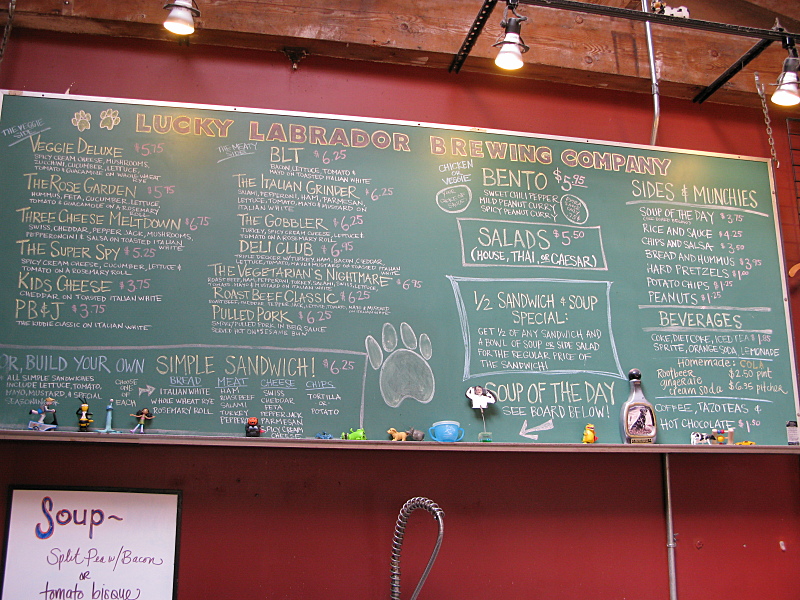 LUCKY LABRADOR BREWING COMPANY
THE VEGGIE SIDE
VEGGIE DELUXE $5.75
SPICY CREAM CHEESE, MUSHROOMS,
ZUCCHINI, CUCUMBER, LETTUCE,
TOMATO & GUACAMOLE ON WHOLE WHEAT RYE
THE ROSE GARDEN $5.75
HUMMUS, FETA, CUCUMBER, LETTUCE,
TOMATO & GUACAMOLE ON A ROSEMARY ROLL
THREE CHEESE MELTDOWN $6.75
SWISS, CHEDDAR, PEPPER JACK, MUSHROOMS,
PEPPERONCINI & SALSA ON TOASTED ITALIAN WHITE
THE SUPER SPY $5.25
SPICY CREAM CHEESE, CUCUMBER, LETTUCE &
TOMATO ON A ROSEMARY ROLL
KIDS CHEESE $3.75
CHEDDAR ON TOASTED ITALIAN WHITE
PB&J $3.75
THE KIDDIE CLASSIC ON ITALIAN WHITE
THE MEATY SIDE
BLT $6.25
BACON, LETTUCE, TOMATO &
MAYO ON TOASTED ITALIAN WHITE
THE ITALIAN GRINDER $6.25
SALAMI, PEPPERONI, HAM, PARMESAN,
LETTUCE, TOMATO, MAYO & MUSTARD ON
ITALIAN WHITE
THE GOBBLER $6.25
TURKEY, SPICY CREAM CHEESE, LETTUCE &
TOMATO ON A ROSEMARY ROLL
DELI CLUB $6.95
TRIPLE DECKER W/TURKEY, HAM, BACON, CHEDDAR,
LETTUCE, TOMATO, MAYO & MUSTARD ON TOASTED ITALIAN WHITE
THE VEGETARIAN'S NIGHTMARE $6.95
ROAST BEEF, HAM, PEPPERONI, TURKEY, SALAMI, SWISS, LETTUCE,
TOMATO, MAYO & MUSTARD ON ITALIAN WHITE
ROAST BEEF CLASSIC $6.25
PULLED PORK $6.25
SMOKY PULLED PORK IN BBQ SAUCE
SERVED HOT ON A SESAME BUN
CHICKEN OR VEGGIE
BENTO $5.95
SWEET CHILI PEPPER
MILD PEANUT CURRY
SPICY PEANUT CURRY
SALADS $5.50
(HOUSE, THAI, OR CAESAR)
1/2 SANDWICH & SOUP
SPECIAL:
GET 1/2 OF ANY SANDWICH AND
A BOWL OF SOUP OR SIDE SALAD
FOR THE REGULAR PRICE OF
THE SANDWICH!
SOUP OF THE DAY
SEE BOARD BELOW!
SIDES & MUNCHIES
SOUP OF THE DAY $3.75
RICE AND SAUCE $4.25
CHIPS AND SALSA $3.50
BREAD AND HUMMUS $3.75
HARD PRETZELS $1.00
POTATO CHIPS $1.25
PEANUTS $1.25
BEVERAGES
COKE, DIET COKE, ICED TEA $1.85
SPRITE, ORANGE SODA, LEMONADE
Homemade: COLA
Rootbeer $2.50 pint
gingerale
cream soda $6.35 pitcher
COFFEE, TAZO TEAS &
HOT CHOLATE $1.50
OR, BUILD YOUR OWN SIMPLE SANDWICH! $6.25
ALL SIMPLE SANDWICHES
INCLUDE LETTUCE, TOMATO,
MAYO, MUSTARD, & SPECIAL
SEASONING
CHOOSE ONE OF EACH
BREAD
ITALIAN WHITE
WHOLE WHEAT RYE
ROSEMARY ROLL
MEAT
HAM
ROAST BEEF
SALAMI
TURKEY
PEPPERONI
CHEESE
SWISS
CHEDDAR
FETA
PEPPERJACK
PARMESAN
SPICY CREAM
CHEESE
CHIPS
TORTILLA
OR
POTATO
Soup~
Split Pea w/Bacon
OR
tomato bisque